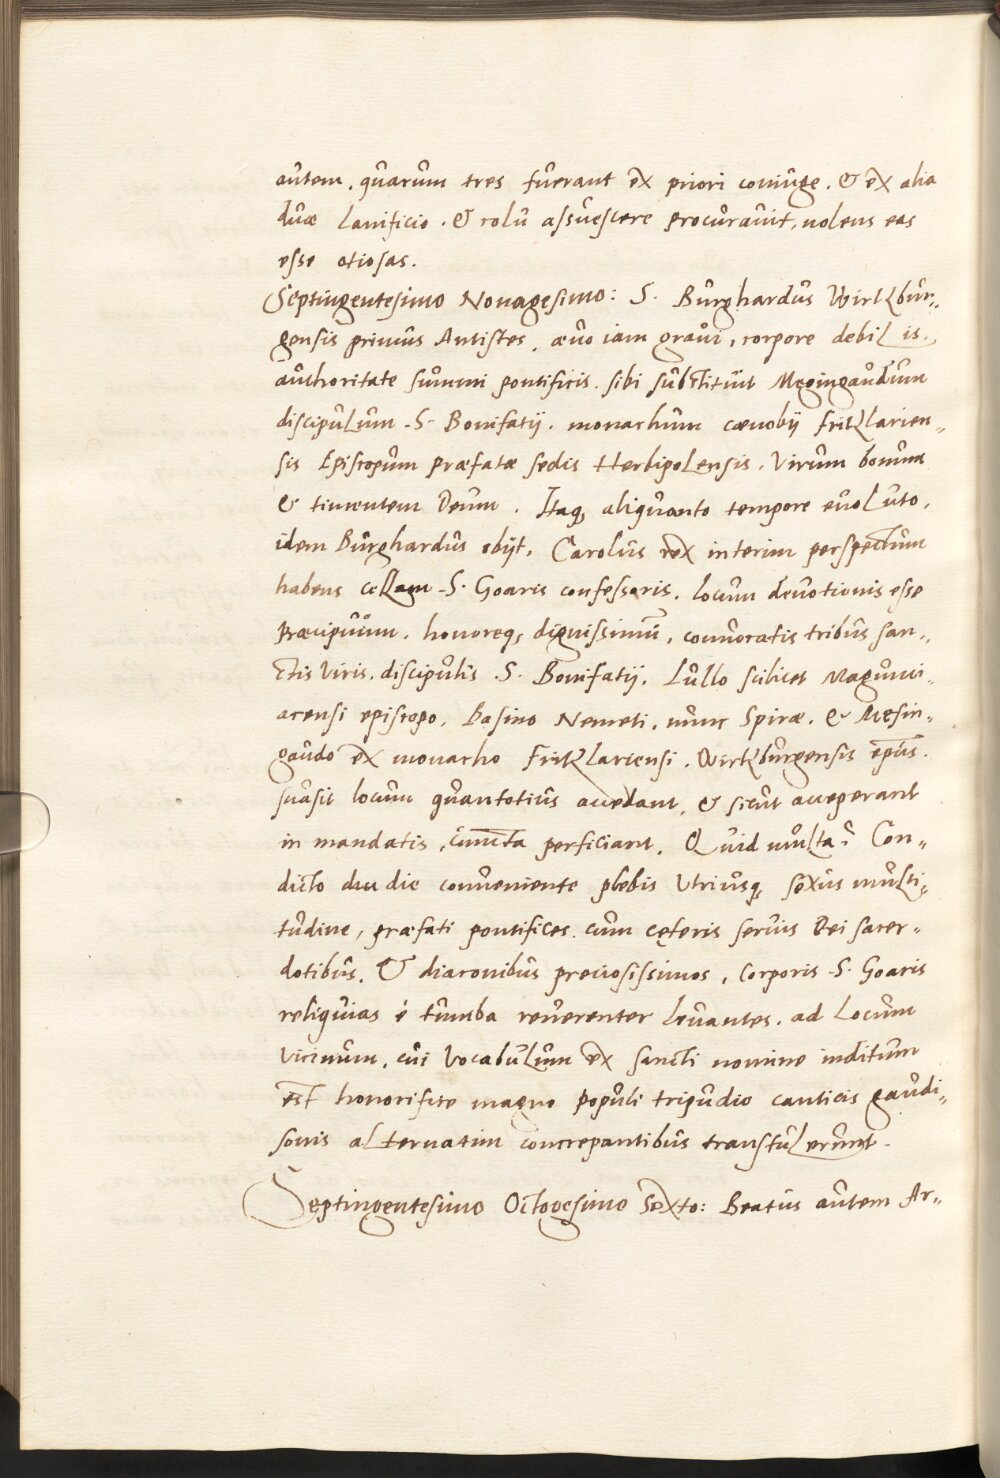 autem, quarum tres fuerant ex priori coniuge, & ex alia
duæ Lanificio, & colu assuescere procurauit, nolens eas
esse otiosas.
Septingentesimo Nonagesimo: S. Burghardus Wirtzbur-
gensis primus Antistes, æuo iam graui, corpore debilis,
authoritate summi pontificis, sibi substituit Megingaudum
discipulum S. Bonifatij, monachum cænobij Fritzlarien-
sis Episcopum præfatæ sedis Herbipolensis, Virum bonum
& timentem Deum. Itaq, aliquanto tempore euoluto,
idem Burghardus obijt, Carolus rex interim perspectum
habens cellam S. Goaris confessoris, locum deuotionis esse
præcipuum, honoreq, dignissimū, connocatis tribus san-
ctis Viris, discipulis S. Bonifatij, Lullo scilicet Magunci-
acensi episcopo, Basino Nemeti, nunc Spiræ, & Mesin-
gaudo ex monacho Fritzlariensi, Wirtzburgensis ēpus.
suasit locum quantotius accedant, & sicut acceperant
in mandatis, cuncta perficiant, Quid multa? Con-
dicto du die conueniente plebis Utriusq, sexus multi-
tudine, præfati pontifices, cum cęteris seruis Dei sacer-
dotibus, & diaconibus preciosissimos, Corporis S. Goaris
reliquias è tumba reuerenter leuantes, ad Locum
Vicinum, cui Vocabulum ex sancti nomine inditum
est honorifice magno populi tripudio canticis gaudi-
sonis alternatim concrepantibus transtulerunt.
Septingentesimo Octogesimo Sexto: Beatus autem Ar-